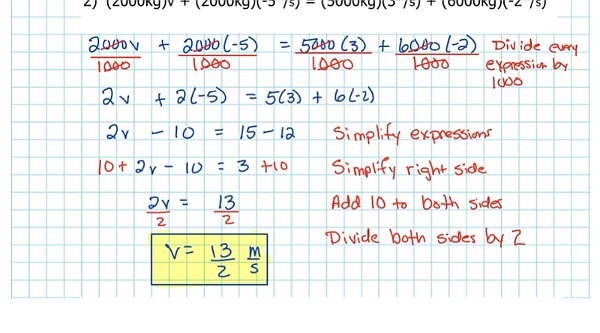 2) (2000kg)v + (2000kg)(-5 m/s) = (5000kg)(3 m/s) + (6000kg)(-2 m/s)
2000v/1000 + 2000(-5)/1000 = 5000(3)/1000 + 6000(-2)/1000 Divide every expression by 1000
2v + 2(-5) = 5(3) + 6(-2)
2v - 10 = 15 - 12 Simplify expressions
10 + 2v - 10 = 3 +10 Simplify right side
2v/2 = 13/2 Add 10 to both sides
Divide both sides by 2
v = 13/2 m/s